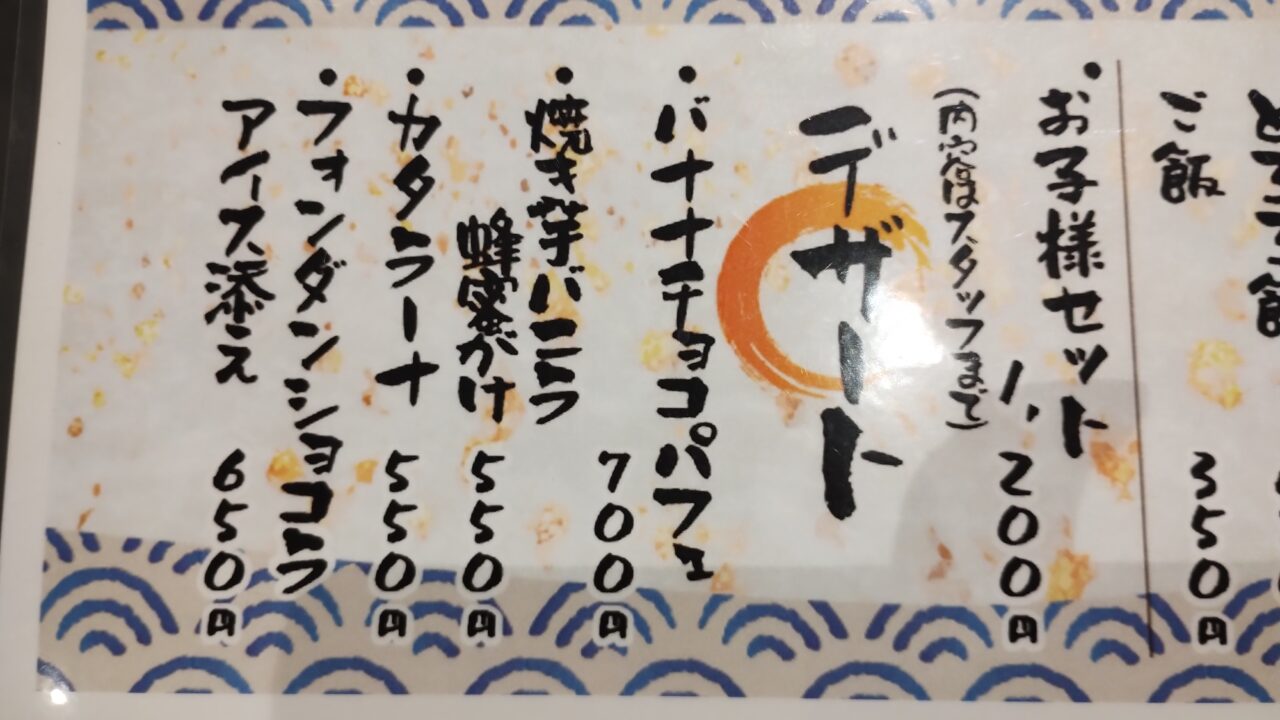 ご飯
350円
・お子様セット
1,200円
(内容はスタッフまで)
デザート
・バナナチョコパフェ
700円
・焼き芋バニラ
蜂蜜がけ
550円
・カタラーナ
550円
・フォンダンショコラ
アイス添え
650円